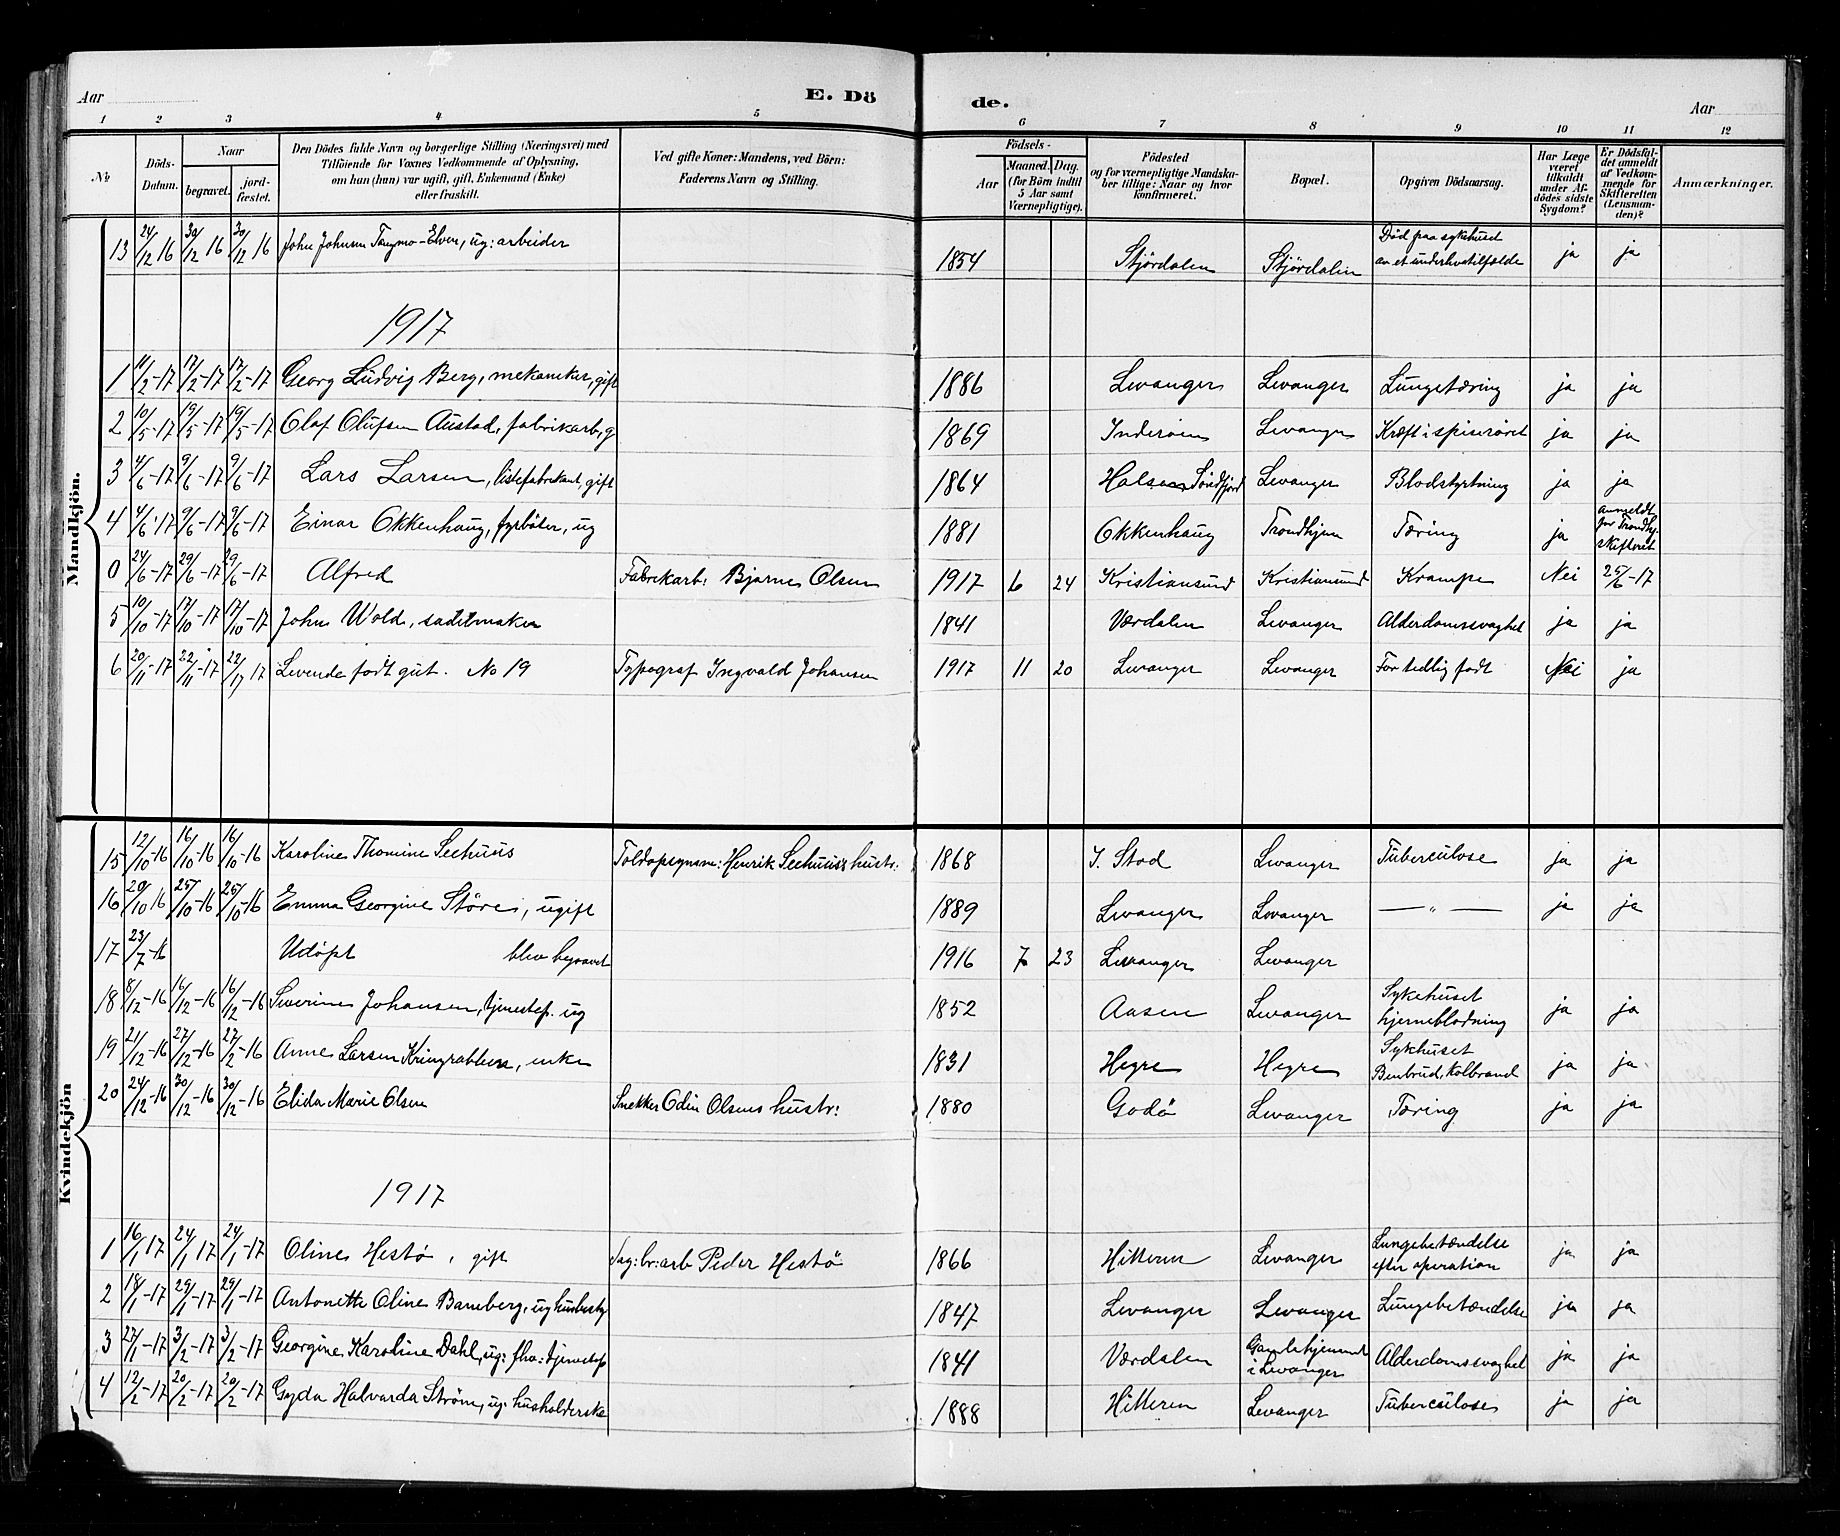 Aar E. Dö de. Aar
1 2 3 4 5 6 7 8 9 10 11 12
No
Döds-Datum.
Naar
begravet.
jord-fæstet.
Den Dödes fulde Navn og borgerlige Stilling (Næringsvei) med
Tillöiende for Voxnes Vedkommende af Oplysning,
om han (hun) var ugift, gift, Enkemand (Enke)
eller fraskilt.
Ved gifte Koner: Mandens, ved Börn:
Faderens Navn og Stilling.
Födsels-
Aar
Maaned. Dag.
(for Börn indtil
5 Aar samt
Værnepligtige).
Födested
og for værnepligtige Mandska-
ber tillige: Naar og hvor
konfirmeret.
Bopæl.
Opgiven Dödsaarsag.
Har Læge
været
tilkaldt
under Af-
dödes sidste
Sygdom?
Er Dödsfal-
det anmeldt
af Vedkom-
mende for
Skifteretten
(Lensman-
den)?
Anmærkninger.
Mandkjön.
13 24/12 16 30/12 16 30/12 16 John Johnsen -Elven, ug: arbeider 1854 Stjördalen Stjördalen Död paa sykehuset
av et ja ja
1917
1 11/2-17 17/2-17 17/2-17 Georg Ludvig Berg, mekaniker, gift 1886 Levanger Levanger Lungetæring ja ja
2 10/5-17 19/5-17 19/5-17 Olaf Olufsen Austad, fabrikarb, g 1869 Inderöen Levanger Kræft i spiseröret ja ja
3 4/6-17 9/6-17 9/6-17 Lars Larsen, listefabrikant, gift 1864 Levanger Blodstyrtning ja ja
4 4/6-17 9/6-17 9/6-17 Einar Okkenhaug, fyrböter, ug 1881 Okkenhaug Trondhjem Tæring ja anmeldt
for Trondhj.
skifteret
0 24/6-17 29/6-17 29/6-17 Alfred Fabrikarb: Bjarne Olsen 1917 6 24 Kristiansund Kristiansund Krampe Nei 25/6-17
5 10/10-17 17/10-17 17/10-17 John Wold, sadelmaker 1841 Værdalen Levanger Alderdomssvaghet ja ja
6 20/11-17 22/11-17 22/11 17 Levende födt gut. No 19 Typograf Ingvald Johansen 1917 11 20 Levanger Levanger For tidlig födt Nei ja
Kvindekjön
15 12/10-16 16/10-16 16/10-16 Karoline Thomine Seehuus Toldopsynsm: Henrik Seehuus's hustr: 1868 Y. Stod Levanger Tuberculose ja ja
16 20/10 16 25/10-16 25/10-16 Emma Georgine Störe, ugift 1889 Levanger Levanger — „ — ja ja
17 23/7-16 Udöpt blev begravet 1916 7 23 Levanger Levanger
18 8/12-16 16/12-16 16/12-16 Severine Johansen, tjenestep. ug 1852 Aasen Levanger Sykehuset
hjerneblödning ja ja
19 21/12-16 27/12-16 27/2-16 Anne Larsen , enke 1831 Hegre Hegre Sykhuset
Benbrud, Kolbrand ja ja
20 24/12-16 30/12-16 30/12-16 Elida Marie Olsen Snekker Odin Olsens hustr: 1880 Godö Levanger Tæring ja ja
1917
1 16/1 17 24/1 17 24/1-17 Oline Hestö, gift Sag:br:arb Peder Hestö 1866 Hitteren Levanger Lungebetændelse
efter operation ja ja
2 18/1-17 29/1-17 29/1-17 Antonette Oline Bamberg, ug husbesty 1847 Levanger Levanger Lungebetændelse ja ja
3 27/1-17 3/2-17 3/2-17 Georgine Karoline Dahl, ug: fhv: tjenestep 1841 Værdalen Gamlehjemmet
i Levanger Alderdomssvaghet ja ja
4 12/2-17 20/2-17 20/2-17 Gyda Halvarda Ström, ug: husholderske 1888 Hitteren Levanger Tuberculose ja ja